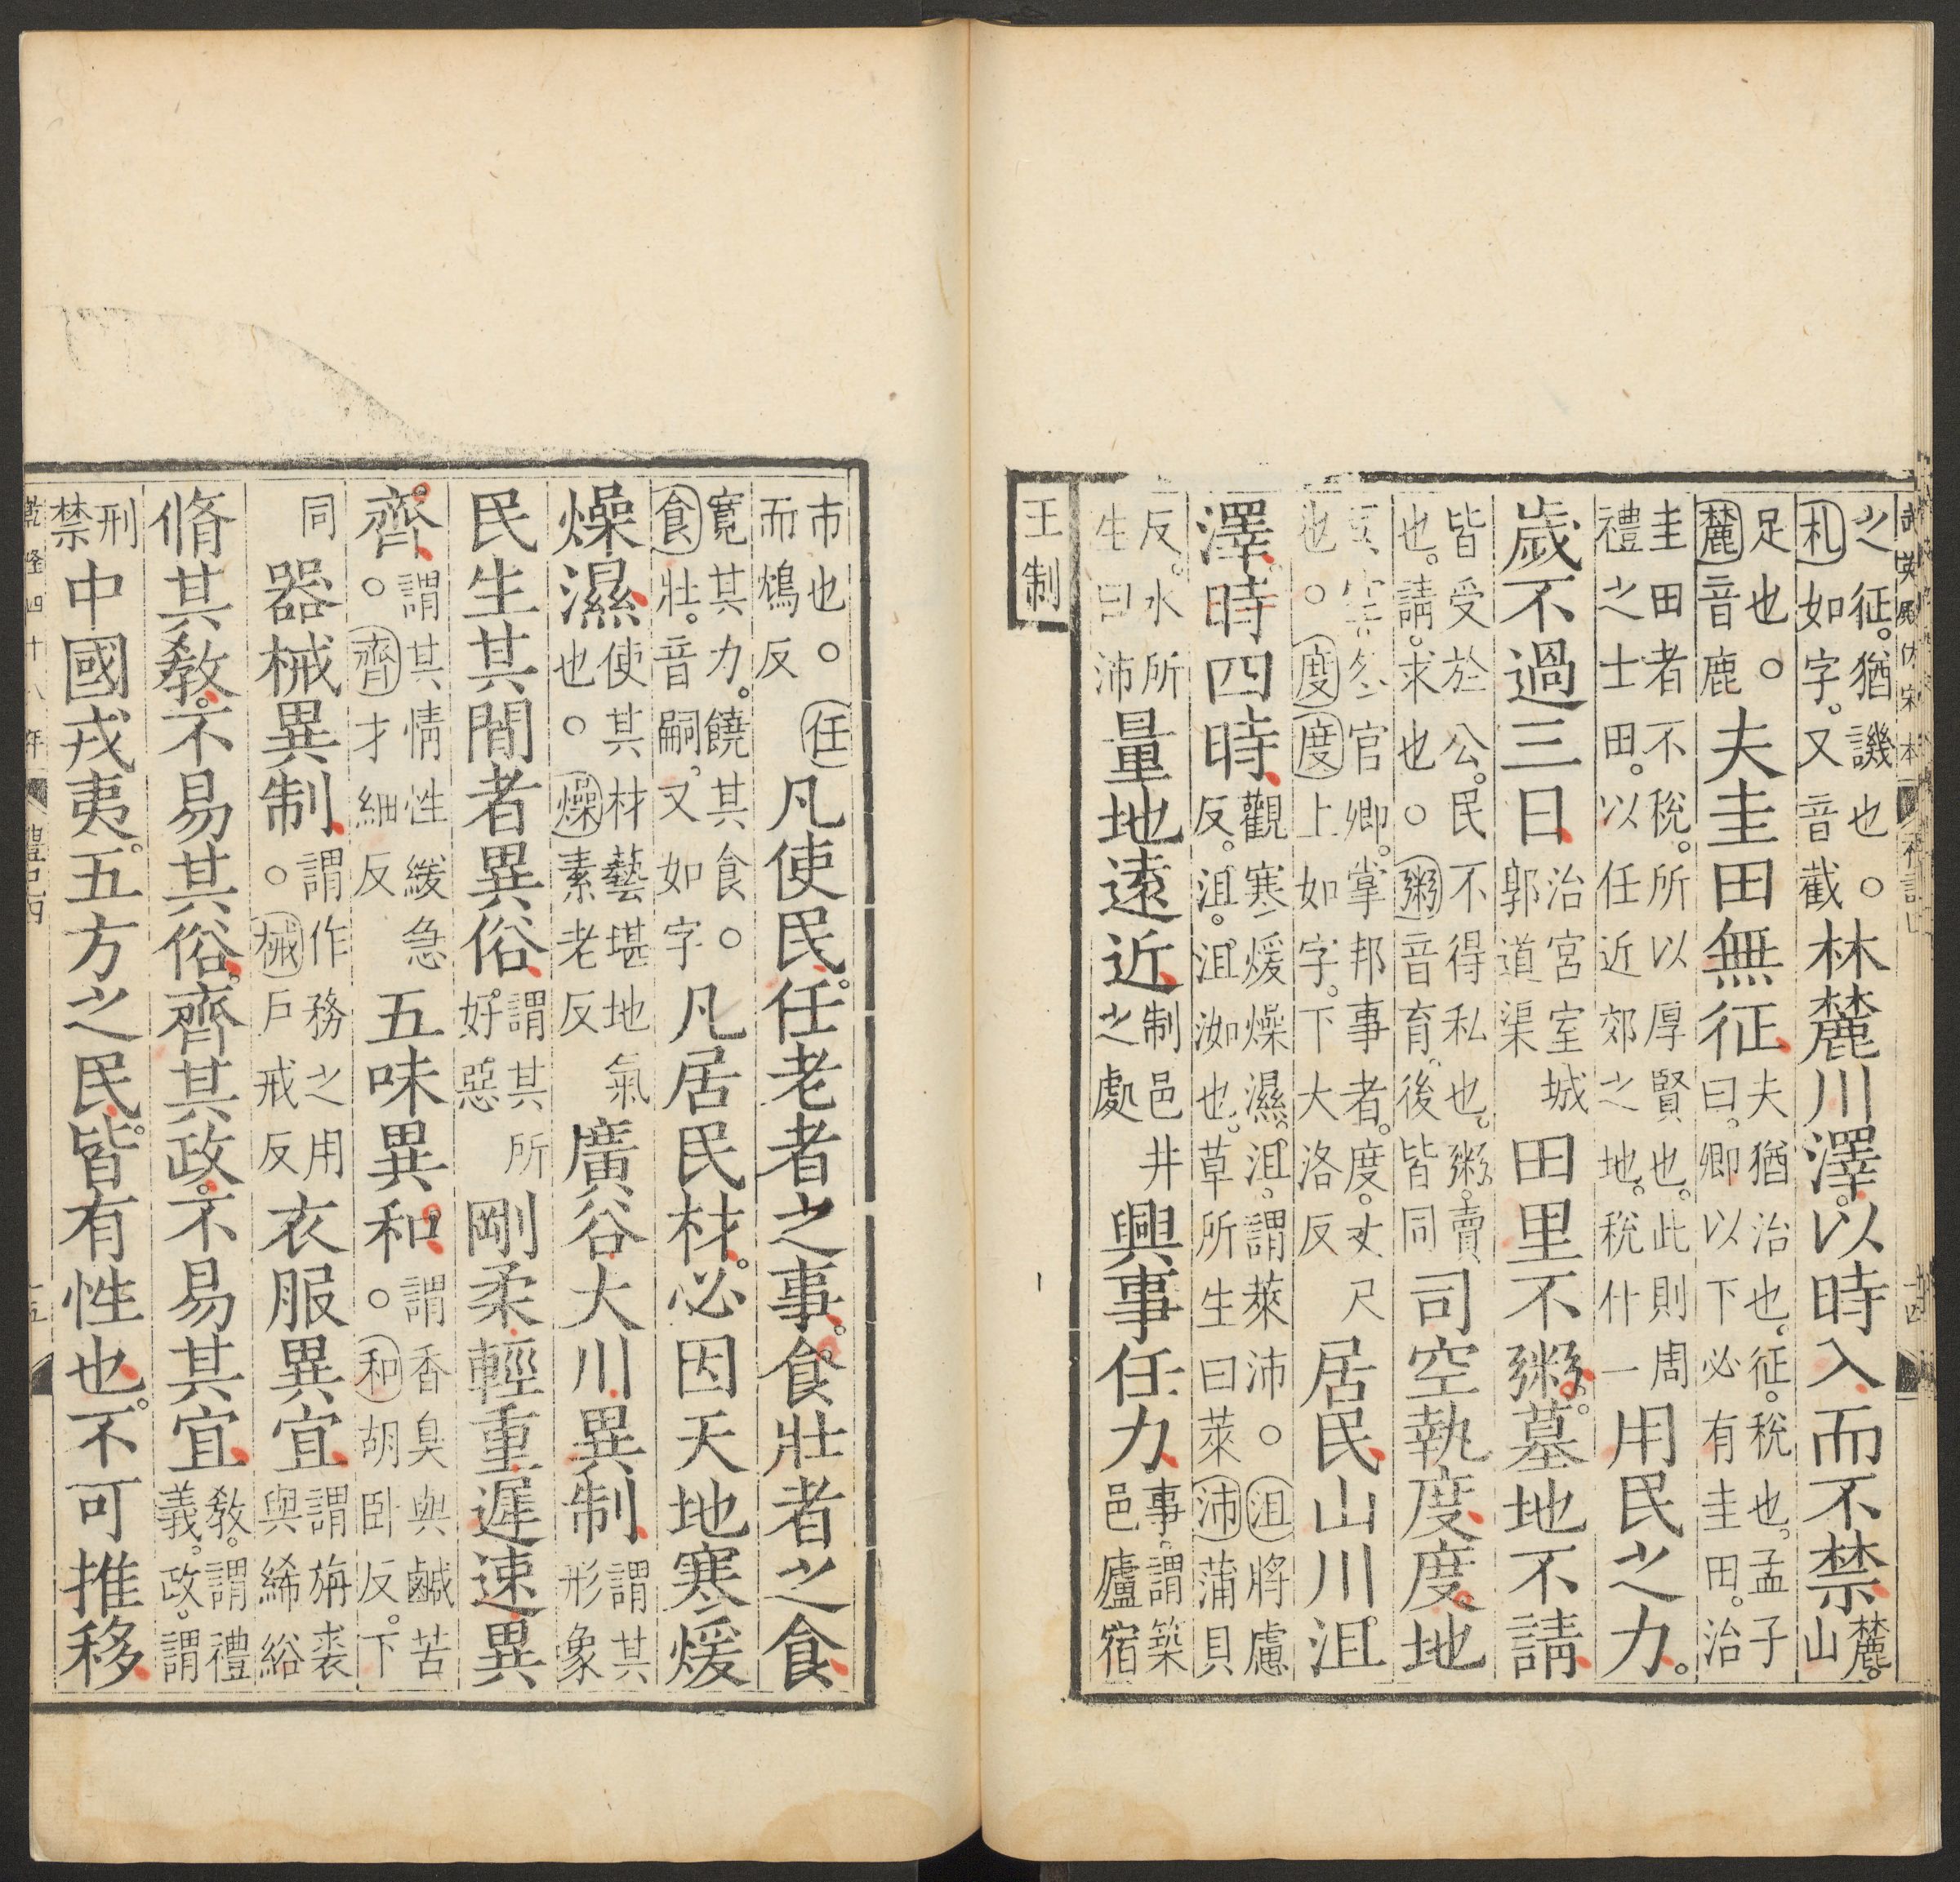 武英殿仿宋本 禮記四 十四
之征。猶譏也○札如字。又音截林麓川澤。以時入而不禁麓。山
足也○麓音鹿夫圭田無征夫猶治也。征。稅也。孟子曰。卿以下必有圭田。治
圭田者不稅。所以厚賢也。此則周禮之士田。以任近郊之地。稅什一用民之力。
歲不過三日治宮室城郭道渠田里不粥。墓地不請
皆受於公。民不得私也。粥。賣也。請。求也○粥音育。後皆同司空執度度。地
冬官卿。掌邦事者。度。丈尺也○度度上如字。下大洛反居民山川。沮
澤時四時觀寒煖燥濕。沮。謂萊沛○沮將慮反。沮。沮洳也。草所生曰萊沛蒲貝
反。水所生曰沛量地遠近制邑井之處興事任力事。謂築邑廬宿
王制
市也○任而鴆反凡使民。任老者之事。食壯者之食
寬其力。饒其食○食壯。音嗣。又如字凡居民材。必因天地寒煖
燥濕使其材藝堪地氣也○燥素老反廣谷大川異制謂其形象
民生其間者異俗謂其所好惡剛柔輕重遲速異
齊。謂其情性緩急○齊才細反五味異和。謂香臭與鹹苦○和胡卧反。下
同器械異制謂作務之用○械戶戒反衣服異宜謂旃裘與絺綌
脩其教。不易其俗。齊其政。不易其宜教。謂禮義。政。謂
刑禁中國戎夷。五方之民。皆有性也。不可推移
乾隆四十八年 禮記四 十五